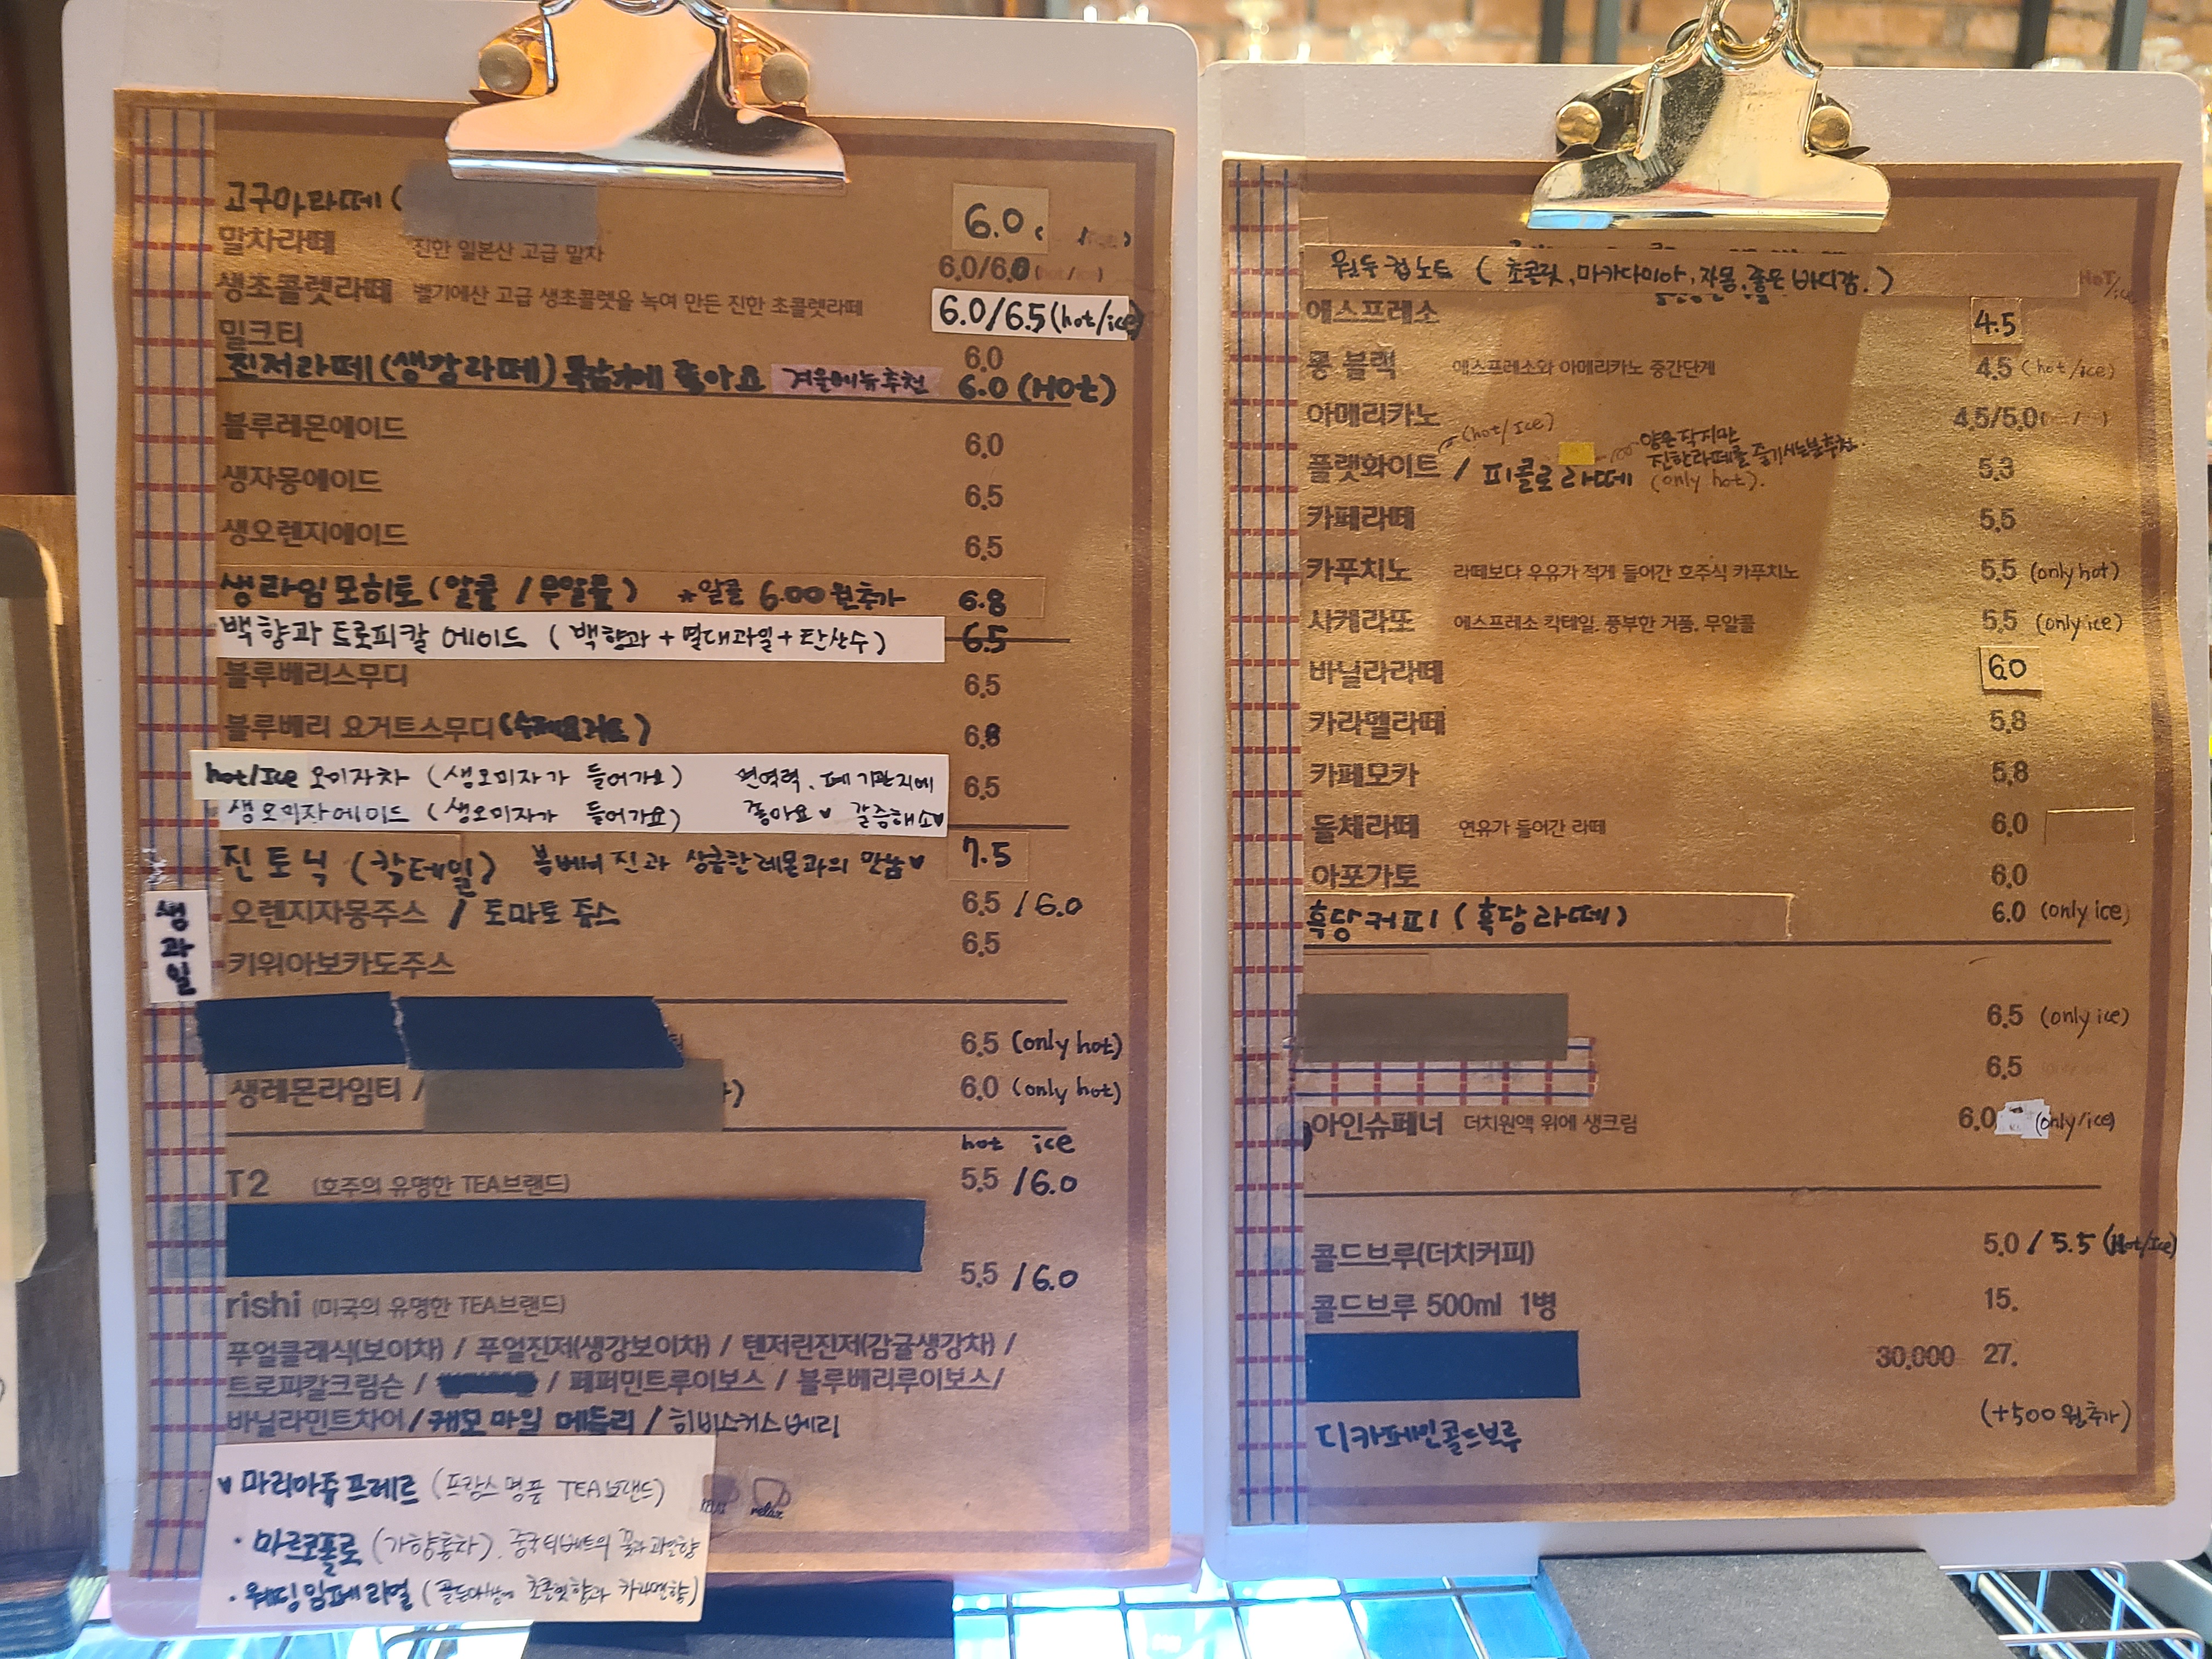 고구마라떼 (
6.0
말차라떼 진한 일본산 고급 말차 6.0/6.0 (hot/ice)
생초콜렛라떼 벨기에산 고급 생초콜렛을 녹여 만든 진한 초콜렛라떼 6.0/6.5 (hot/ice)
밀크티 6.0
진저라떼 (생강라떼) 목감기에 좋아요 겨울메뉴추천 6.0 (HOt)
블루레몬에이드 6.0
생자몽에이드 6.5
생오렌지에이드 6.5
생라임모히토 (알콜 / 무알콜) *알콜 6.00원추가 6.8
백향과 트로피칼 에이드 (백향과 + 열대과일 + 탄산수) 6.5
블루베리스무디 6.5
블루베리 요거트스무디 (수제요거트) 6.8
hot/Ice 오미자차 (생오미자가 들어가요) 면역력. 폐 기관지에 6.5
생오미자에이드 (생오미자가 들어가요) 좋아요♥ 갈증해소♥
진토닉 (칵테일) 봄베이 진과 상큼한 레몬과의 만남♥ 7.5
생과일
오렌지자몽주스 / 토마토쥬스 6.5 / 6.0
키위아보카도주스 6.5
6.5 (only hot)
생레몬라임티 / ) 6.0 (only hot)
hot ice
T2 (호주의 유명한 TEA브랜드) 5.5 / 6.0
5.5 / 6.0
rishi (미국의 유명한 TEA브랜드)
푸얼클래식(보이차) / 푸얼진저(생강보이차) / 텐저린진저(감귤생강차) /
트로피칼크림슨 / / 페퍼민트루이보스 / 블루베리루이보스/
바닐라민트차이 / 캐모마일 메들리 / 히비스커스베리
♥ 마리아쥬프레르 (프랑스 명품 TEA브랜드)
relax
· 마르코폴로 (가향홍차). 중국티베트의 꽃과 과일향
· 웨딩임페리얼 (골든아쌈에 초콜릿향과 카라멜향)
원두컵노트 ( 초콜릿, 마카다미아, 자몽, 좋은 바디감. )
HOT/ice
에스프레소 4.5
롱 블랙 에스프레소와 아메리카노 중간단계 4.5 (hot/ice)
아메리카노 4.5/5.0
(hot/Ice) 양은작지만
플랫화이트 / 피콜로라떼 진한라떼를 즐기시는분추천. 5.3
(only hot).
카페라떼 5.5
카푸치노 라떼보다 우유가 적게 들어간 호주식 카푸치노 5.5 (only hot)
사케라또 에스프레소 칵테일. 풍부한 거품. 무알콜 5.5 (only ice)
바닐라라떼 6.0
카라멜라떼 5.8
카페모카 5.8
돌체라떼 연유가 들어간 라떼 6.0
아포가토 6.0
흑당커피 (흑당라떼) 6.0 (only ice)
6.5 (only ice)
6.5
아인슈페너 더치원액 위에 생크림 6.0 (only/ice)
콜드브루(더치커피) 5.0 / 5.5 (Hot/Ice)
콜드브루 500ml 1병 15.
30,000 27.
디카페인콜드브루 (+500원추가)